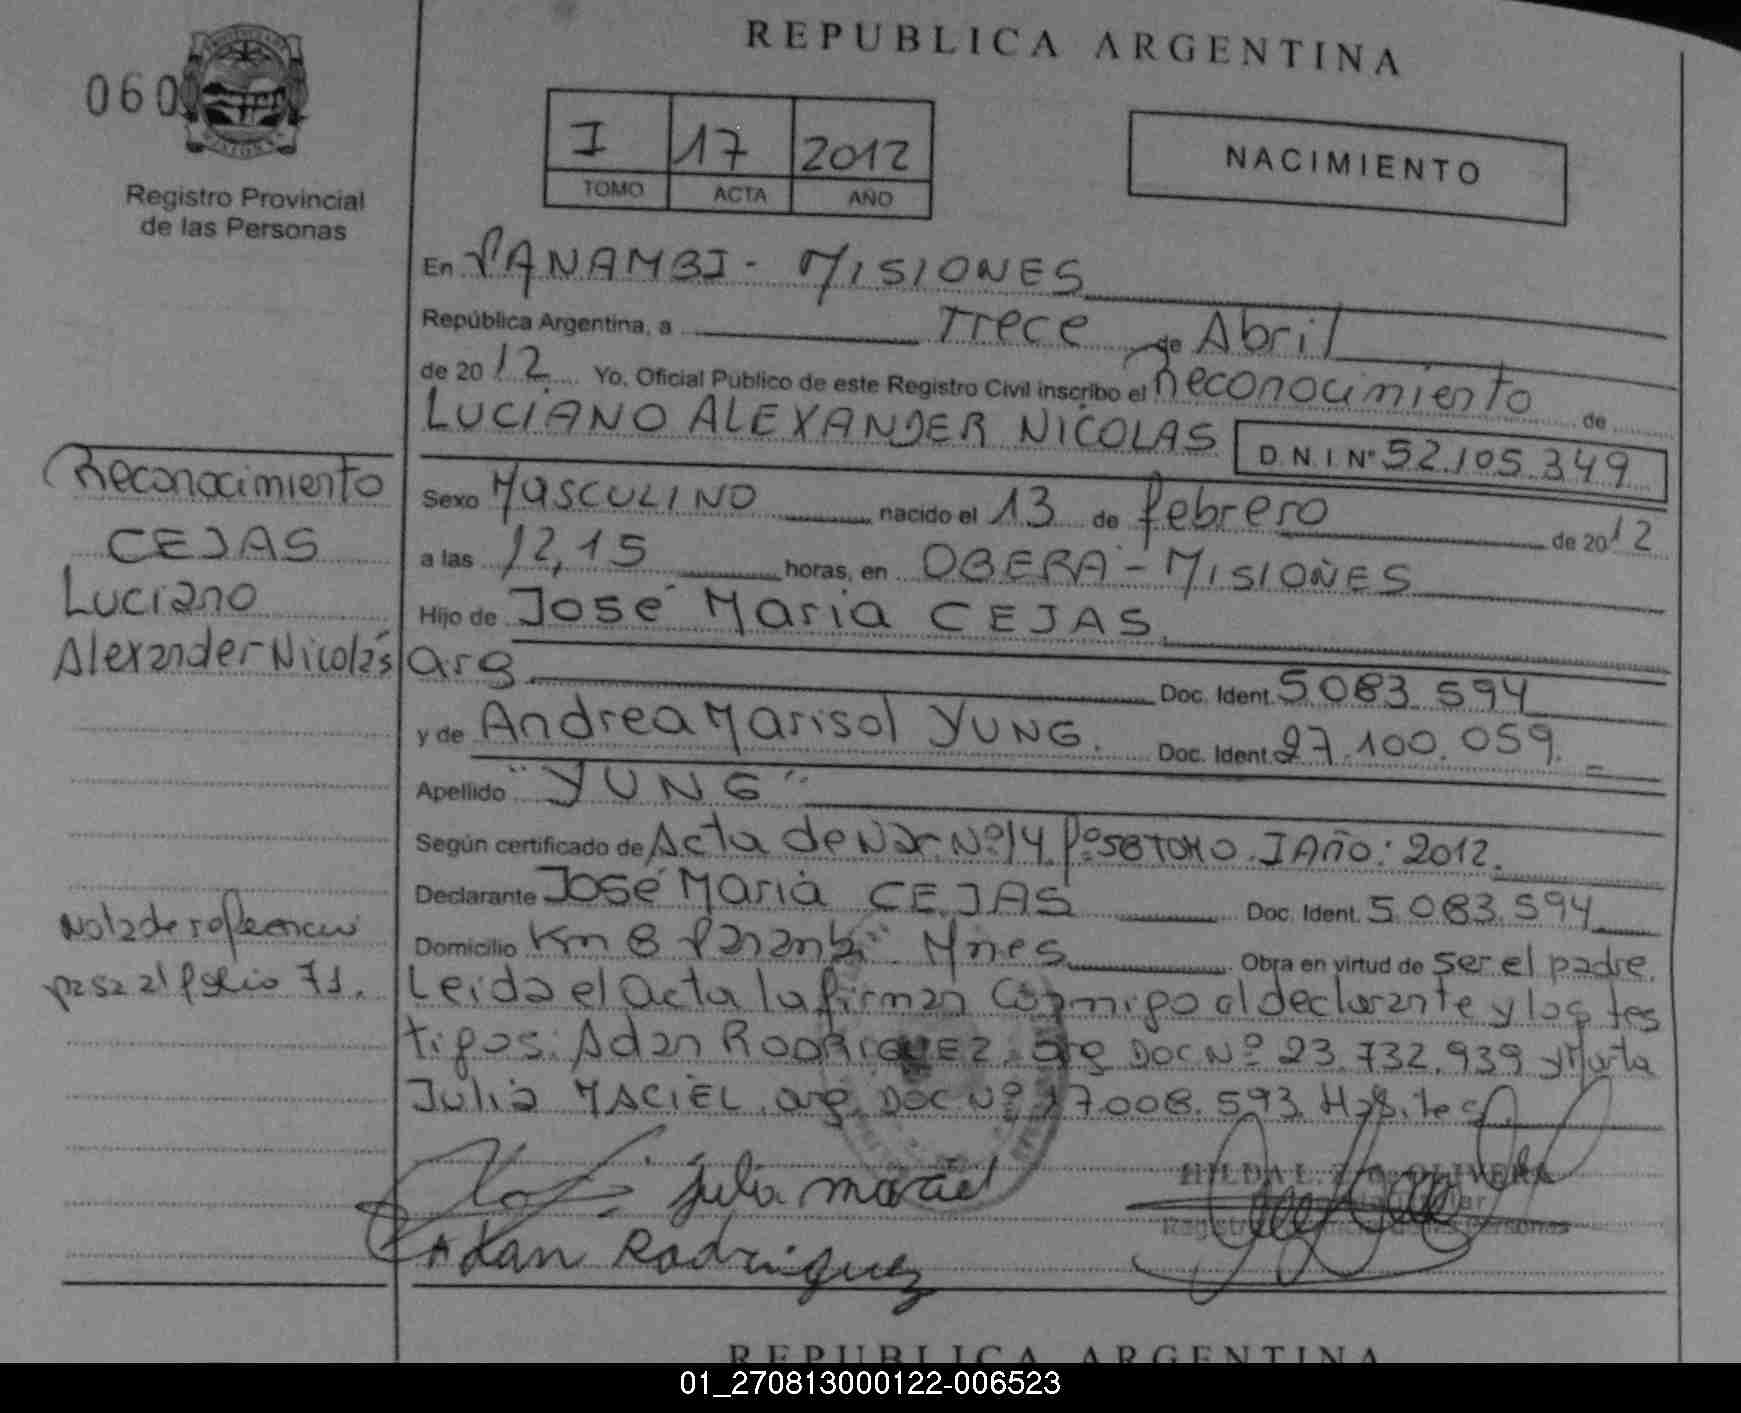 REPUBLICA ARGENTINA
060
Registro Provincial
de las Personas
I 17 2012
TOMO ACTA AÑO
NACIMIENTO
En PANAMBI - MISIONES
República Argentina, a Trece de Abril
de 2012 Yo, Oficial Público de este Registro Civil inscribo el Reconocimiento de
LUCIANO ALEXANDER NICOLAS D.N.I Nº 52.105.349
Sexo MASCULINO nacido el 13 de febrero de 2012
a las 12,15 horas, en OBERA - MISIONES
Hijo de José Maria CEJAS
arg Doc. Ident. 5.083.594
y de Andrea Marisol YUNG. Doc. Ident. 27.100.059.
Apellido "YUNG"
Según certificado de Acta de Nac. Nº 14. Fº 58 TOMO. I Año: 2012.
Declarante José Maria CEJAS Doc. Ident. 5.083.594
Domicilio Km 8 Panambi Mnes Obra en virtud de ser el padre.
Leida el acta la firman conmigo el declarante y los tes
tigos: Adan RODRIGUEZ. arg Doc Nº 23.732.939 y Marta
Julia MACIEL. arg. Doc Nº 17.008.593
Reconocimiento
CEJAS
Luciano
Alexander Nicolás
Nota de referencia
pasa al folio 71.
Julia maciel
Adan Rodriguez
HILDA L. OLIVERA
REPUBLICA ARGENTINA
01_270813000122-006523